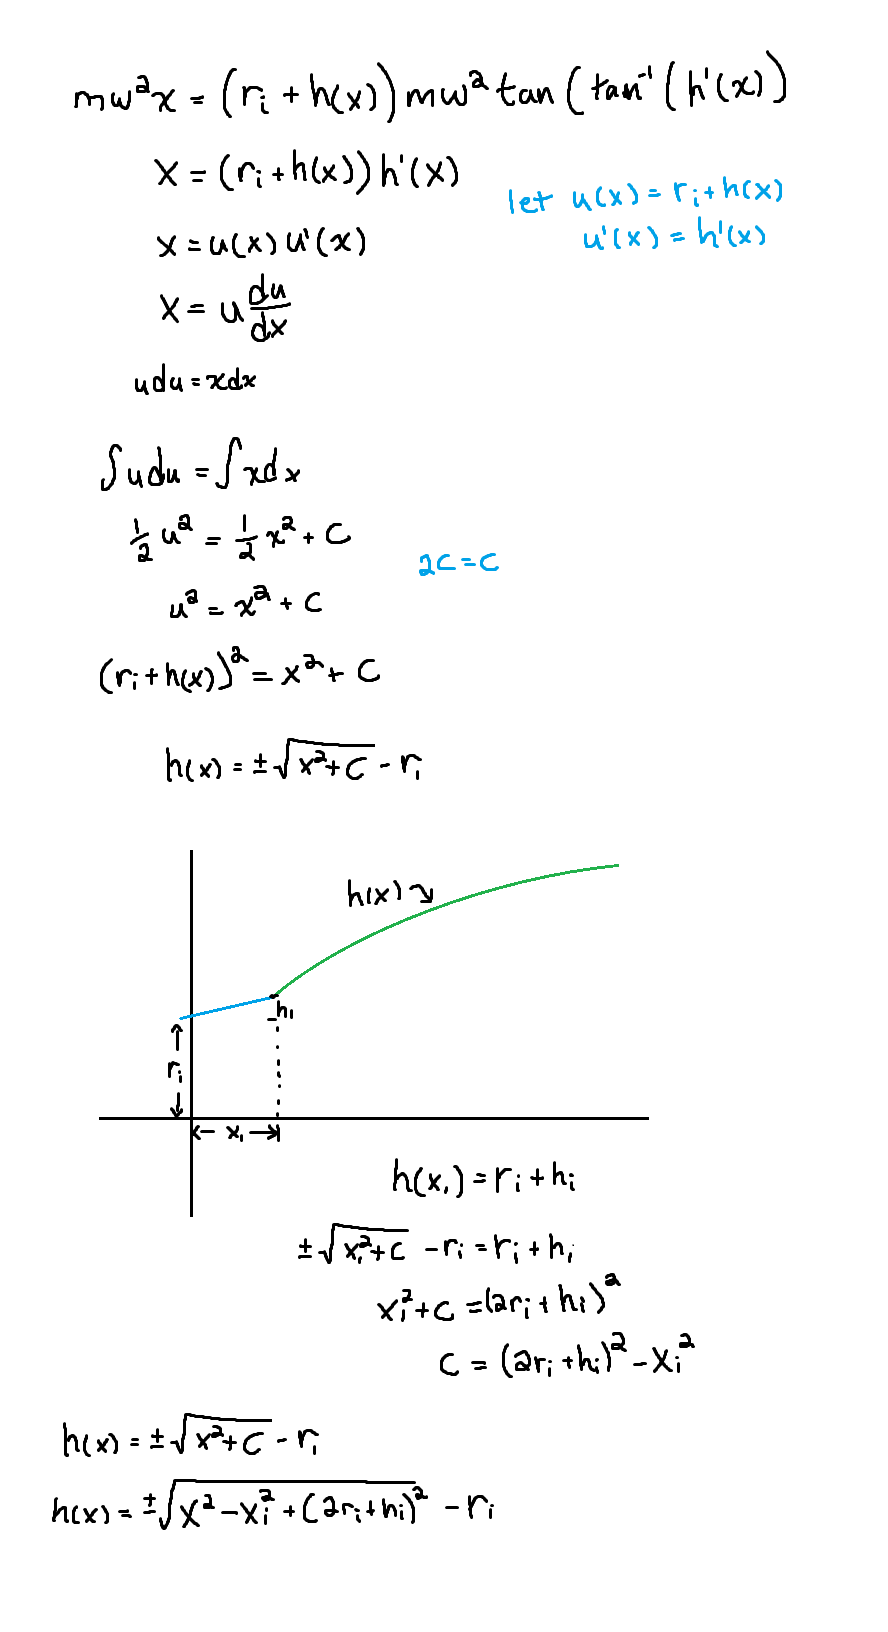 mw²x = (rᵢ + h(x)) mw² tan(tan⁻¹(h'(x))
x = (rᵢ + h(x)) h'(x)
let u(x) = rᵢ + h(x)
x = u(x) u'(x)
u'(x) = h'(x)
x = u du/dx
udu = xdx
∫udu = ∫xdx
1/2 u² = 1/2 x² + C
2C = C
u² = x² + C
(rᵢ + h(x))² = x² + C
h(x) = ±√(x² + C) - rᵢ
h(x)
hᵢ
rᵢ
xᵢ
h(xᵢ) = rᵢ + hᵢ
±√(xᵢ² + C) - rᵢ = rᵢ + hᵢ
xᵢ² + C = (2rᵢ + hᵢ)²
C = (2rᵢ + hᵢ)² - xᵢ²
h(x) = ±√(x² + C) - rᵢ
h(x) = ±√(x² - xᵢ² + (2rᵢ + hᵢ)²) - rᵢ